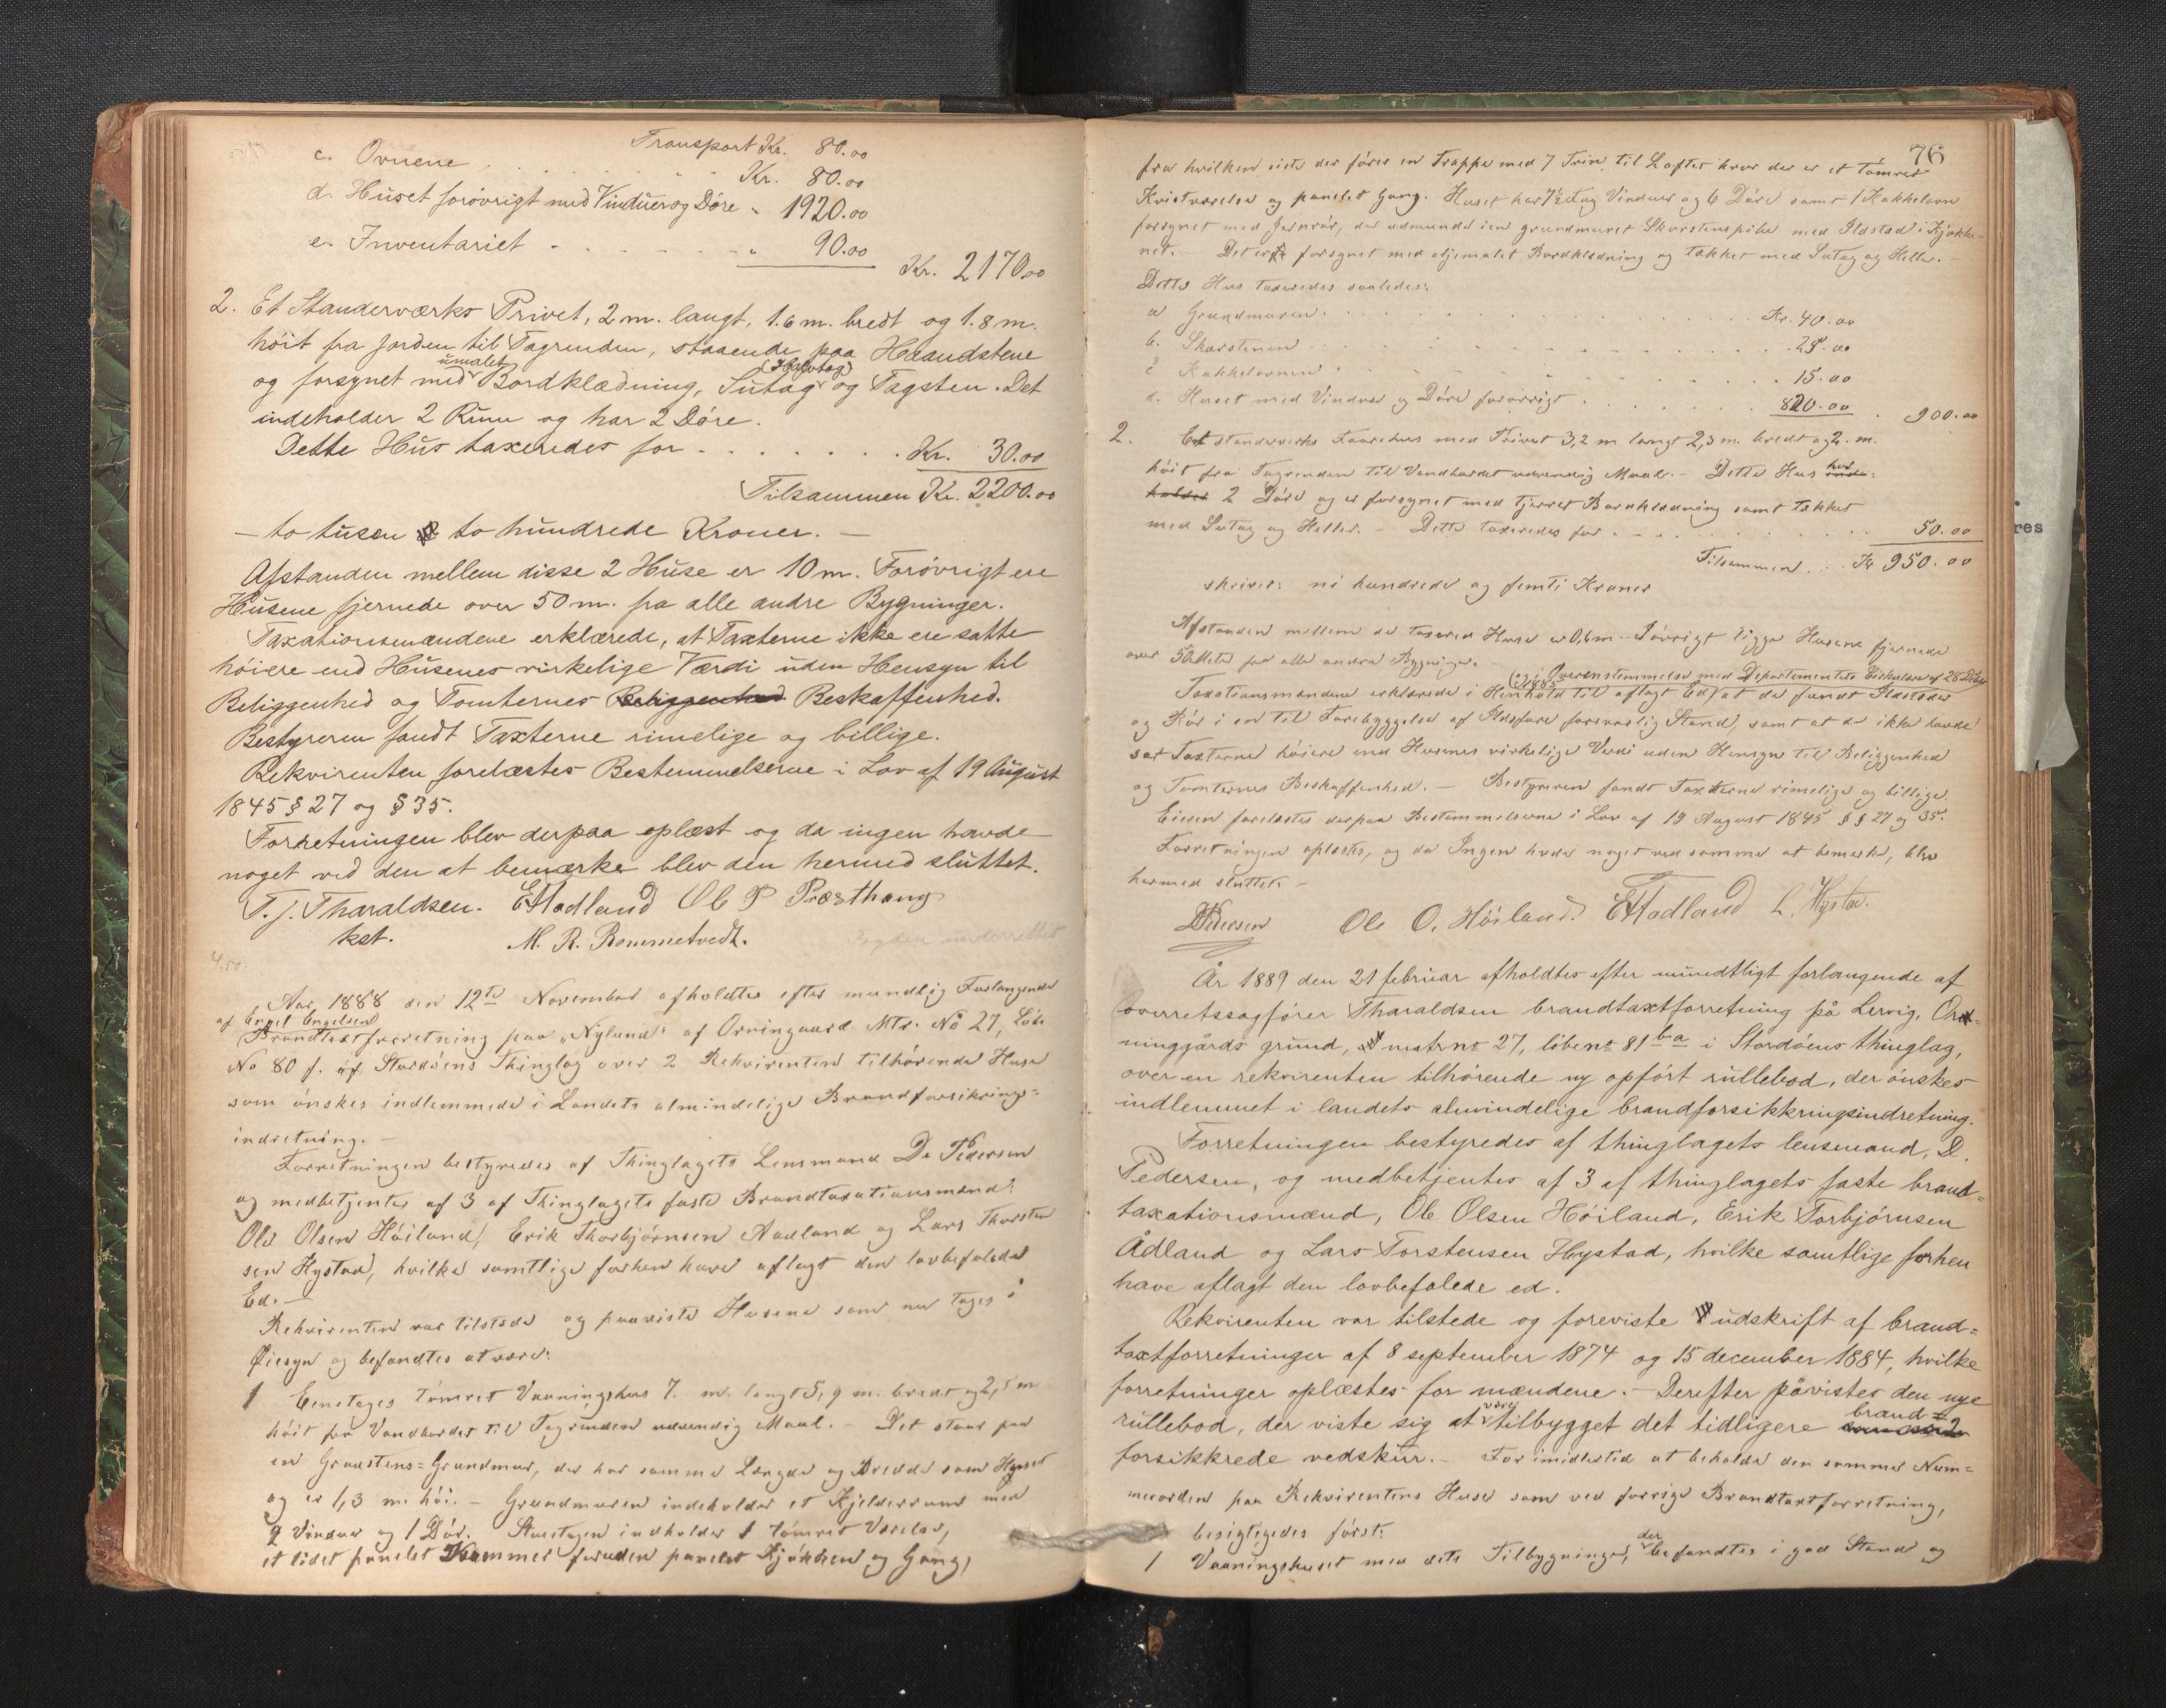 Transport Kr. 80.00
c. Ovnene . . . . . . Kr. 80.00
d. Huset forøvrigt med Vinduer og Døre " 1920.00
e. Inventariet - - - - - - " 90.00
Kr. 2170.00
2. Et Standerværks Privet, 2 m. langt, 1.6 m. bredt og 1.8 m.
høit fra Jorden til Tagrenden, staaende paa Heraandstene
umalet (Halvtag)
og forsynet med Bordklædning, Sutag og Tagsten. Det
indeholder 2 Rum og har 2 Døre.
Dette Hus taxeredes for . . . . . . . Kr. 30.00
Tilsammen Kr. 2200.00
— to tusen to hundrede Kroner. —
Afstanden mellem disse 2 Huse er 10 m. Forøvrigt ere
Husene fjernede over 50 m. fra alle andre Bygninger.
Taxationsmændene erklærede, at Taxterne ikke ere satte
høiere end Husenes virkelige Værdi uden Hensyn til
Beliggenhed og Tomternes Beliggenhed Beskaffenhed.
Bestyreren fandt Taxterne rimelige og billige.
Rekvirenten forelæstes Bestemmelserne i Lov af 19 August
1845 § 27 og § 35.
Forretningen blev derpaa oplæst og da ingen havde
noget ved den at bemærke blev den hermed sluttet.
T. J. Tharaldsen. E Aadland Ole P Præsthaug
kst. M. R. Rommetvedt.
Fogden underrettet
4.50.
Aar 1888 den 12te November afholdtes efter mundlig Forlangende
af Engel Engelsen
Brandtaxtforretning paa "Nylund" af Orningaard Mtr. No 27, Løbe
No 80 f. af Stordøens Thinglag over 2 Rekvirenten tilhørende Huse
som ønskes indlemmede i Landets almindelige Brandforsikrings=
indretning. —
Forretningen bestyredes af Thinglagets Lensmand D. Pedersen
og medbetjentes af 3 af Thinglagets faste Brandtaxationsmænd:
Ole Olsen Høiland, Erik Thorbjørnsen Aadland og Lars Thorsten
sen Hystad, hvilke samtlige forhen have aflagt den lovbefalede
Ed. —
Rekvirenten var tilstede og paaviste Husene som nu toges i
Øiesyn og befandtes at være:
1 Eenetages tømret Vaaningshus 7. m. langt 5,9 m. bredt og 2,5 m
høit fra Vandbordet til Tagrenden udvendig Maal. — Det staar paa
en Graastens=Grundmur, der har samme Længde og Bredde som Huset
og er 1,3 m. høi. — Grundmuren indeholder et Kjelderrum med
2 Vinduer og 1 Dør. Stuetagen indholder 1 tømret Værelse,
et lidet panelet Kammer foruden panelet Kjøkken og Gang,
76
fra hvilken sidste der fører en Trappe med 7 Trin til Loftet hvor der er et tømret
Kvistværelse og panelet Gang. Huset har 7½ Fag Vinduer og 6 Døre samt 1 Kakkelovn
forsynet med Jernrør, der udmunde i en grundmuret Skorstenspibe med Ildsted i Kjøkke-
net. — Det er forsynet med oljemalet Bordklædning og tækket med Sutag og Heller. —
Dette Hus taxeredes saaledes:
a Grundmuren . . . . . . . . . Kr. 40.00
b. Skorstenen . . . . . . . . . 25.00
c Kakkelovnen . . . . . . . . . 15.00
d. Huset med Vinduer og Døre forøvrigt . . . . . 820.00 . 900.00
2. Et standerværks Faarehus med Privet 3,2 m langt 2,3 m. bredt og 2. m.
høit fra Tagrenden til Vandbordet udvendig Maal. — Dette Hus har inde=
holder 2 Døre og er forsynet med tjærret Bordklædning samt tækket
med Sutag og Heller. — Dette taxeredes for . . . . . . . 50.00
Tilsammen . . . Kr 950.00
skriver: ni hundrede og femti Kroner
Afstanden mellem de taxered Huse er 0,6 m. — Førrigt ligge Husene fjernede
over 50 Meter fra alle andre Bygninger. —
(og i Overensstemmelse med Departementets Cirkulære af 28 Dcbr
1885
Taxationsmændene erklærede i Henhold til aflagt Ed) at de fandt Ildsteder
og Rør i en til Forebyggelse af Ildsfare forsvarlig Stand, samt at de ikke havde
sat Taxterne høiere end Husenes virkelige Verdi uden Hensyn til Beliggenhed
og Tomternes Beskaffenhed. — Bestyreren fandt Taxterne rimelige og billige.
Eieren forelæstes derpaa Bestemmelserne i Lov af 19 August 1845 § § 27 og 35.
Forretningen oplæstes, og da Ingen havde noget ved samme at bemerke, blev
hermed sluttet. —
DPedersen Ole O. Høiland. E Aadland L. Hystad.
År 1889 den 21 februar afholdtes efter mundtligt forlangende af
overretssagfører Tharaldsen brandtaxtforretning på Lervig, Or-
ninggårds grund, matr no 27, løbeno 81 ba i Stordøens thinglag,
over en rekvirenten tilhørende ny opført rullebod, der ønskes
indlemmet i landets almindelige brandforsikkringsindretning.
Forretningen bestyredes af thinglagets lensmand, D.
Pedersen, og medbetjentes af 3 af thinglagets faste brand=
taxationsmænd, Ole Olsen Høiland, Erik Torbjørnsen
Ådland og Lars Torstensen Hystad, hvilke samtlige forhen
have aflagt den lovbefalede ed.
Rekvirenten var tilstede og foreviste udskrift af brand=
taxtforretninger af 8 september 1874 og 15 december 1884, hvilke
forretninger oplæstes for mændene. — Derefter påvistes den nye
være brand=
rullebod, der viste sig at tilbygget det tidligere
forsikkrede vedskur. — For imidlertid at beholde den samme Num=
merorden paa Rekvirentens Huse som ved forrige Brandtaxtforretning,
besigtigedes først:
der
1 Vaaningshuset med dets Tilbygninger, befandtes i god Stand og